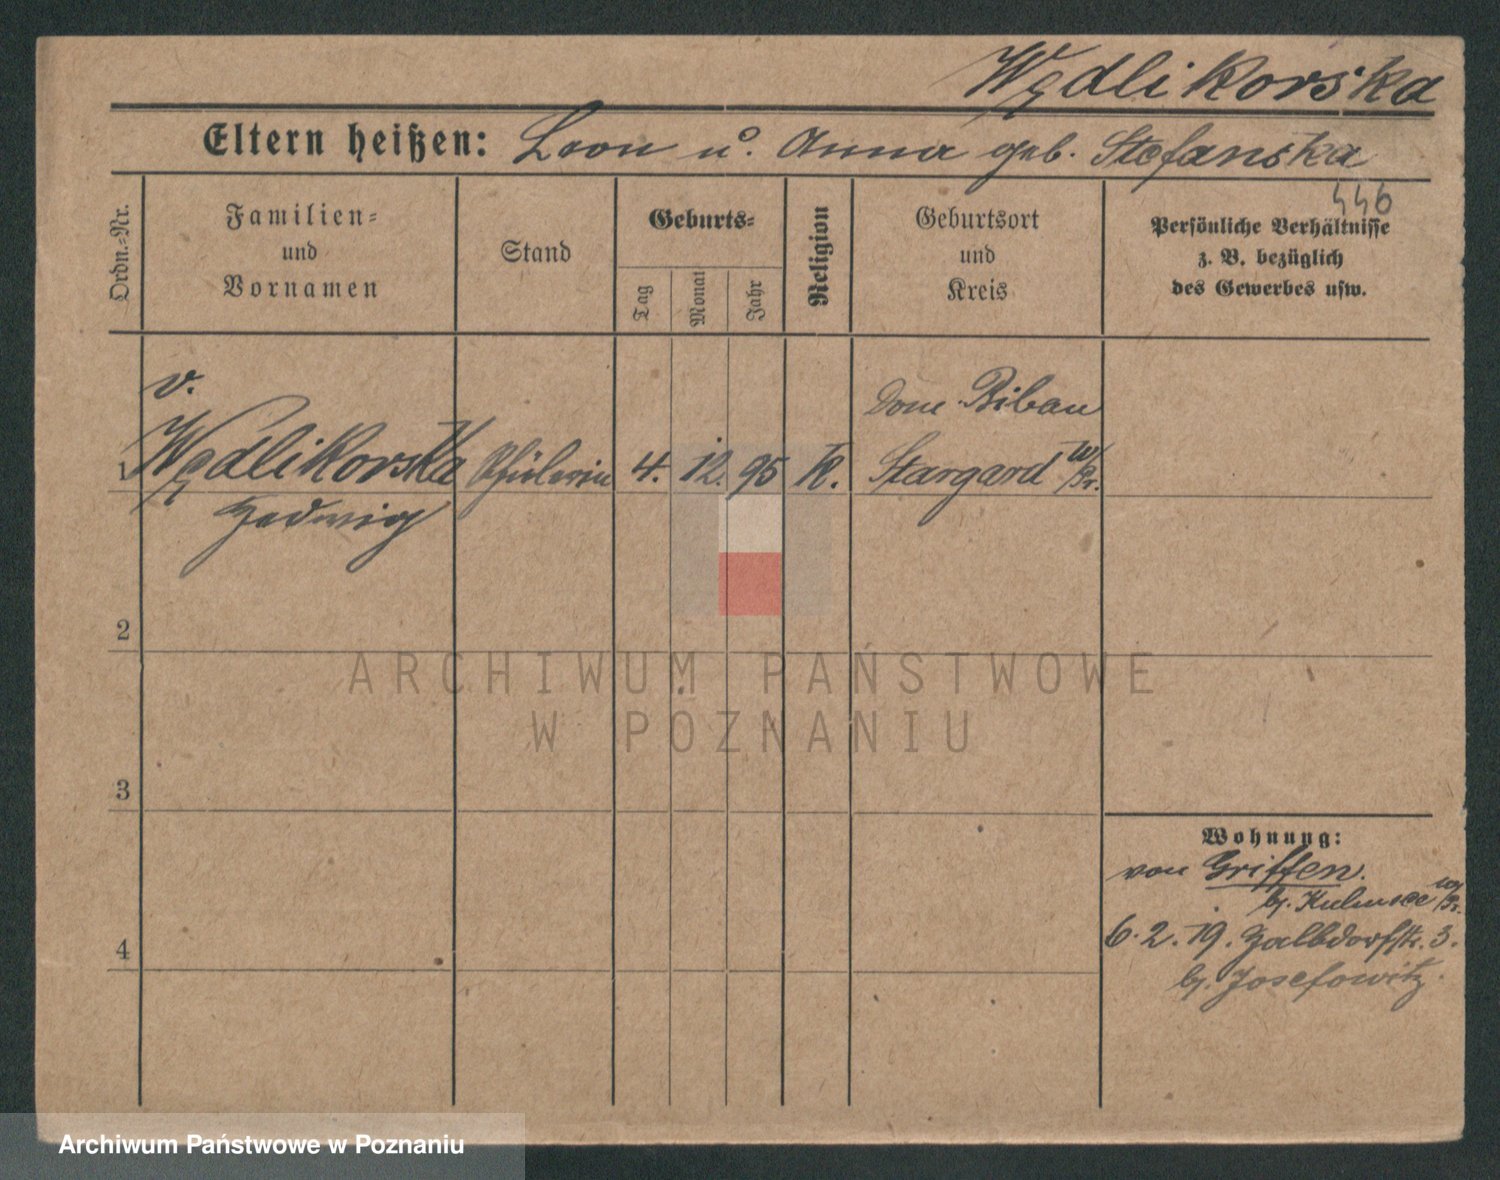 Wędlikorska
Eltern heißen: Leon u. Anna geb. Stefanska
446
Ordn.-Nr.
Familien-
und
Vornamen
Stand
Geburts-
Tag
Monat
Jahr
Religion
Geburtsort
und
Kreis
Persönliche Verhältnisse
z. B. bezüglich
des Gewerbes usw.
v. Dom. Bibau
1 Wędlikorska Schülerin 4. 12. 95 K. Stargard W/Pr.
Hedwig
2
ARCHIWUM PAŃSTWOWE
W POZNANIU
3
Wohnung:
von Griffen.
b/. Kulmsee W/Pr.
4 6.2.19. Halbdorfstr. 3.
b/. Josefowitz.
Archiwum Państwowe w Poznaniu